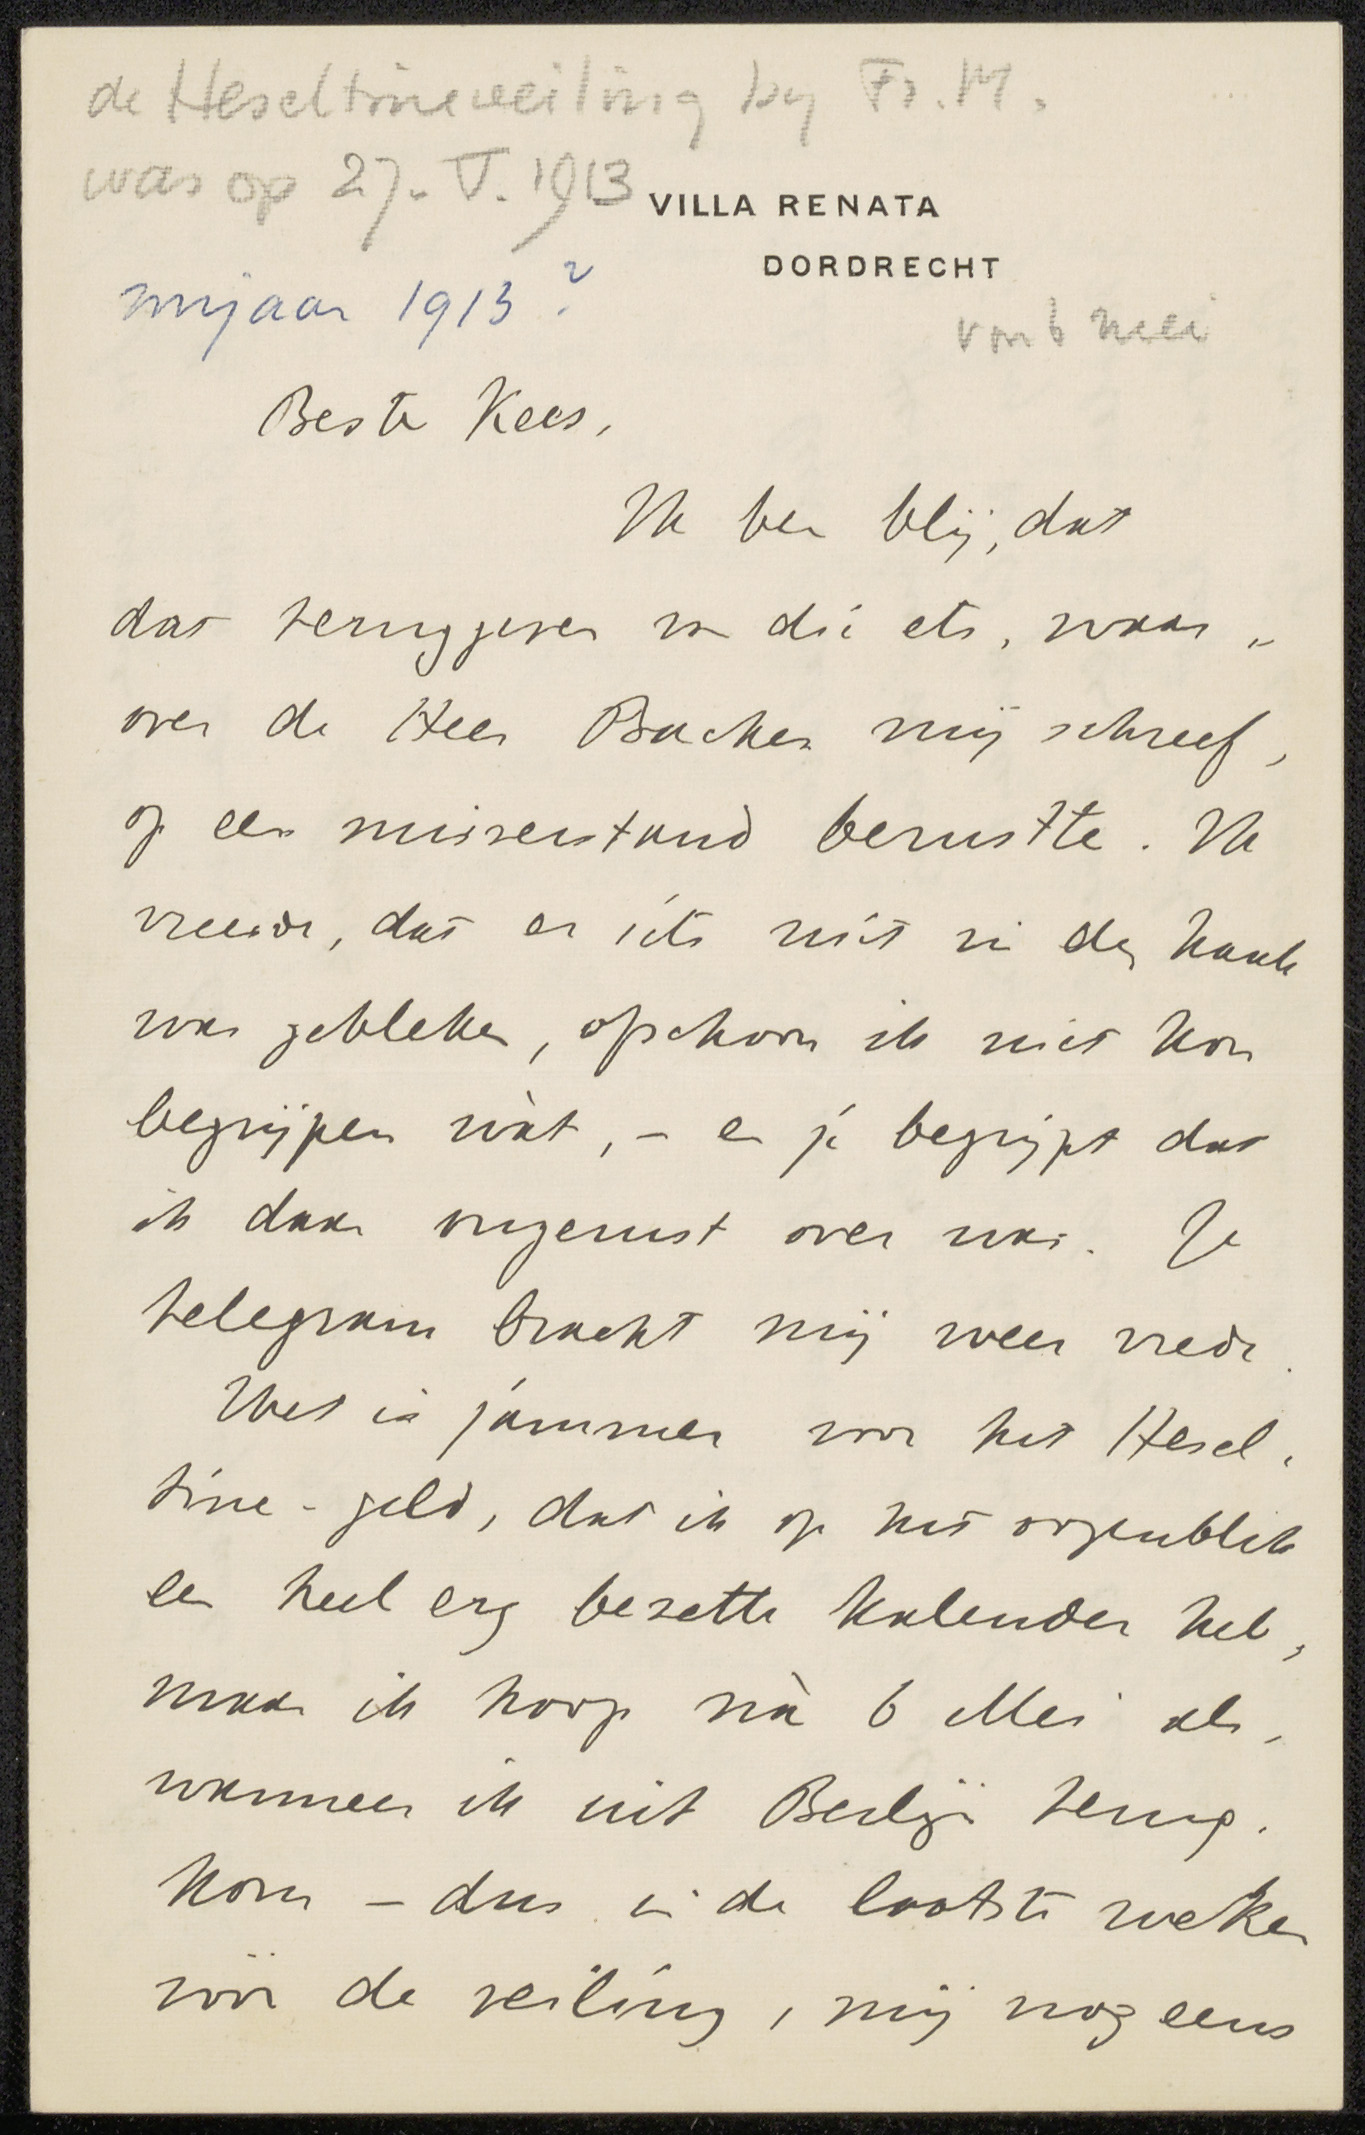 de Heseltineveiling by Fr. M.
was op 27. V. 1913
VILLA RENATA
DORDRECHT
1913?
6 mei
Beste Kees,
Ik ben blij, dat
dat teruggeven van die ets, waar-
over de Heer Backer mij schreef,
op een misverstand berustte. Ik
vreesde, dat er iets niet in den haak
was gebleken, ofschoon ik niet kon
begrijpen wàt, - en je begrijpt dat
ik daar ongerust over was. Je
telegram bracht mij weer vrede.
Het is jammer voor het Hesel-
tine-geld, dat ik op het oogenblik
een heel erg bezette kalender heb,
maar ik hoop nà 6 Mei als,
wanneer ik uit België terug-
kom - dus in de laatste weken
vóór de veiling, mij nog eens